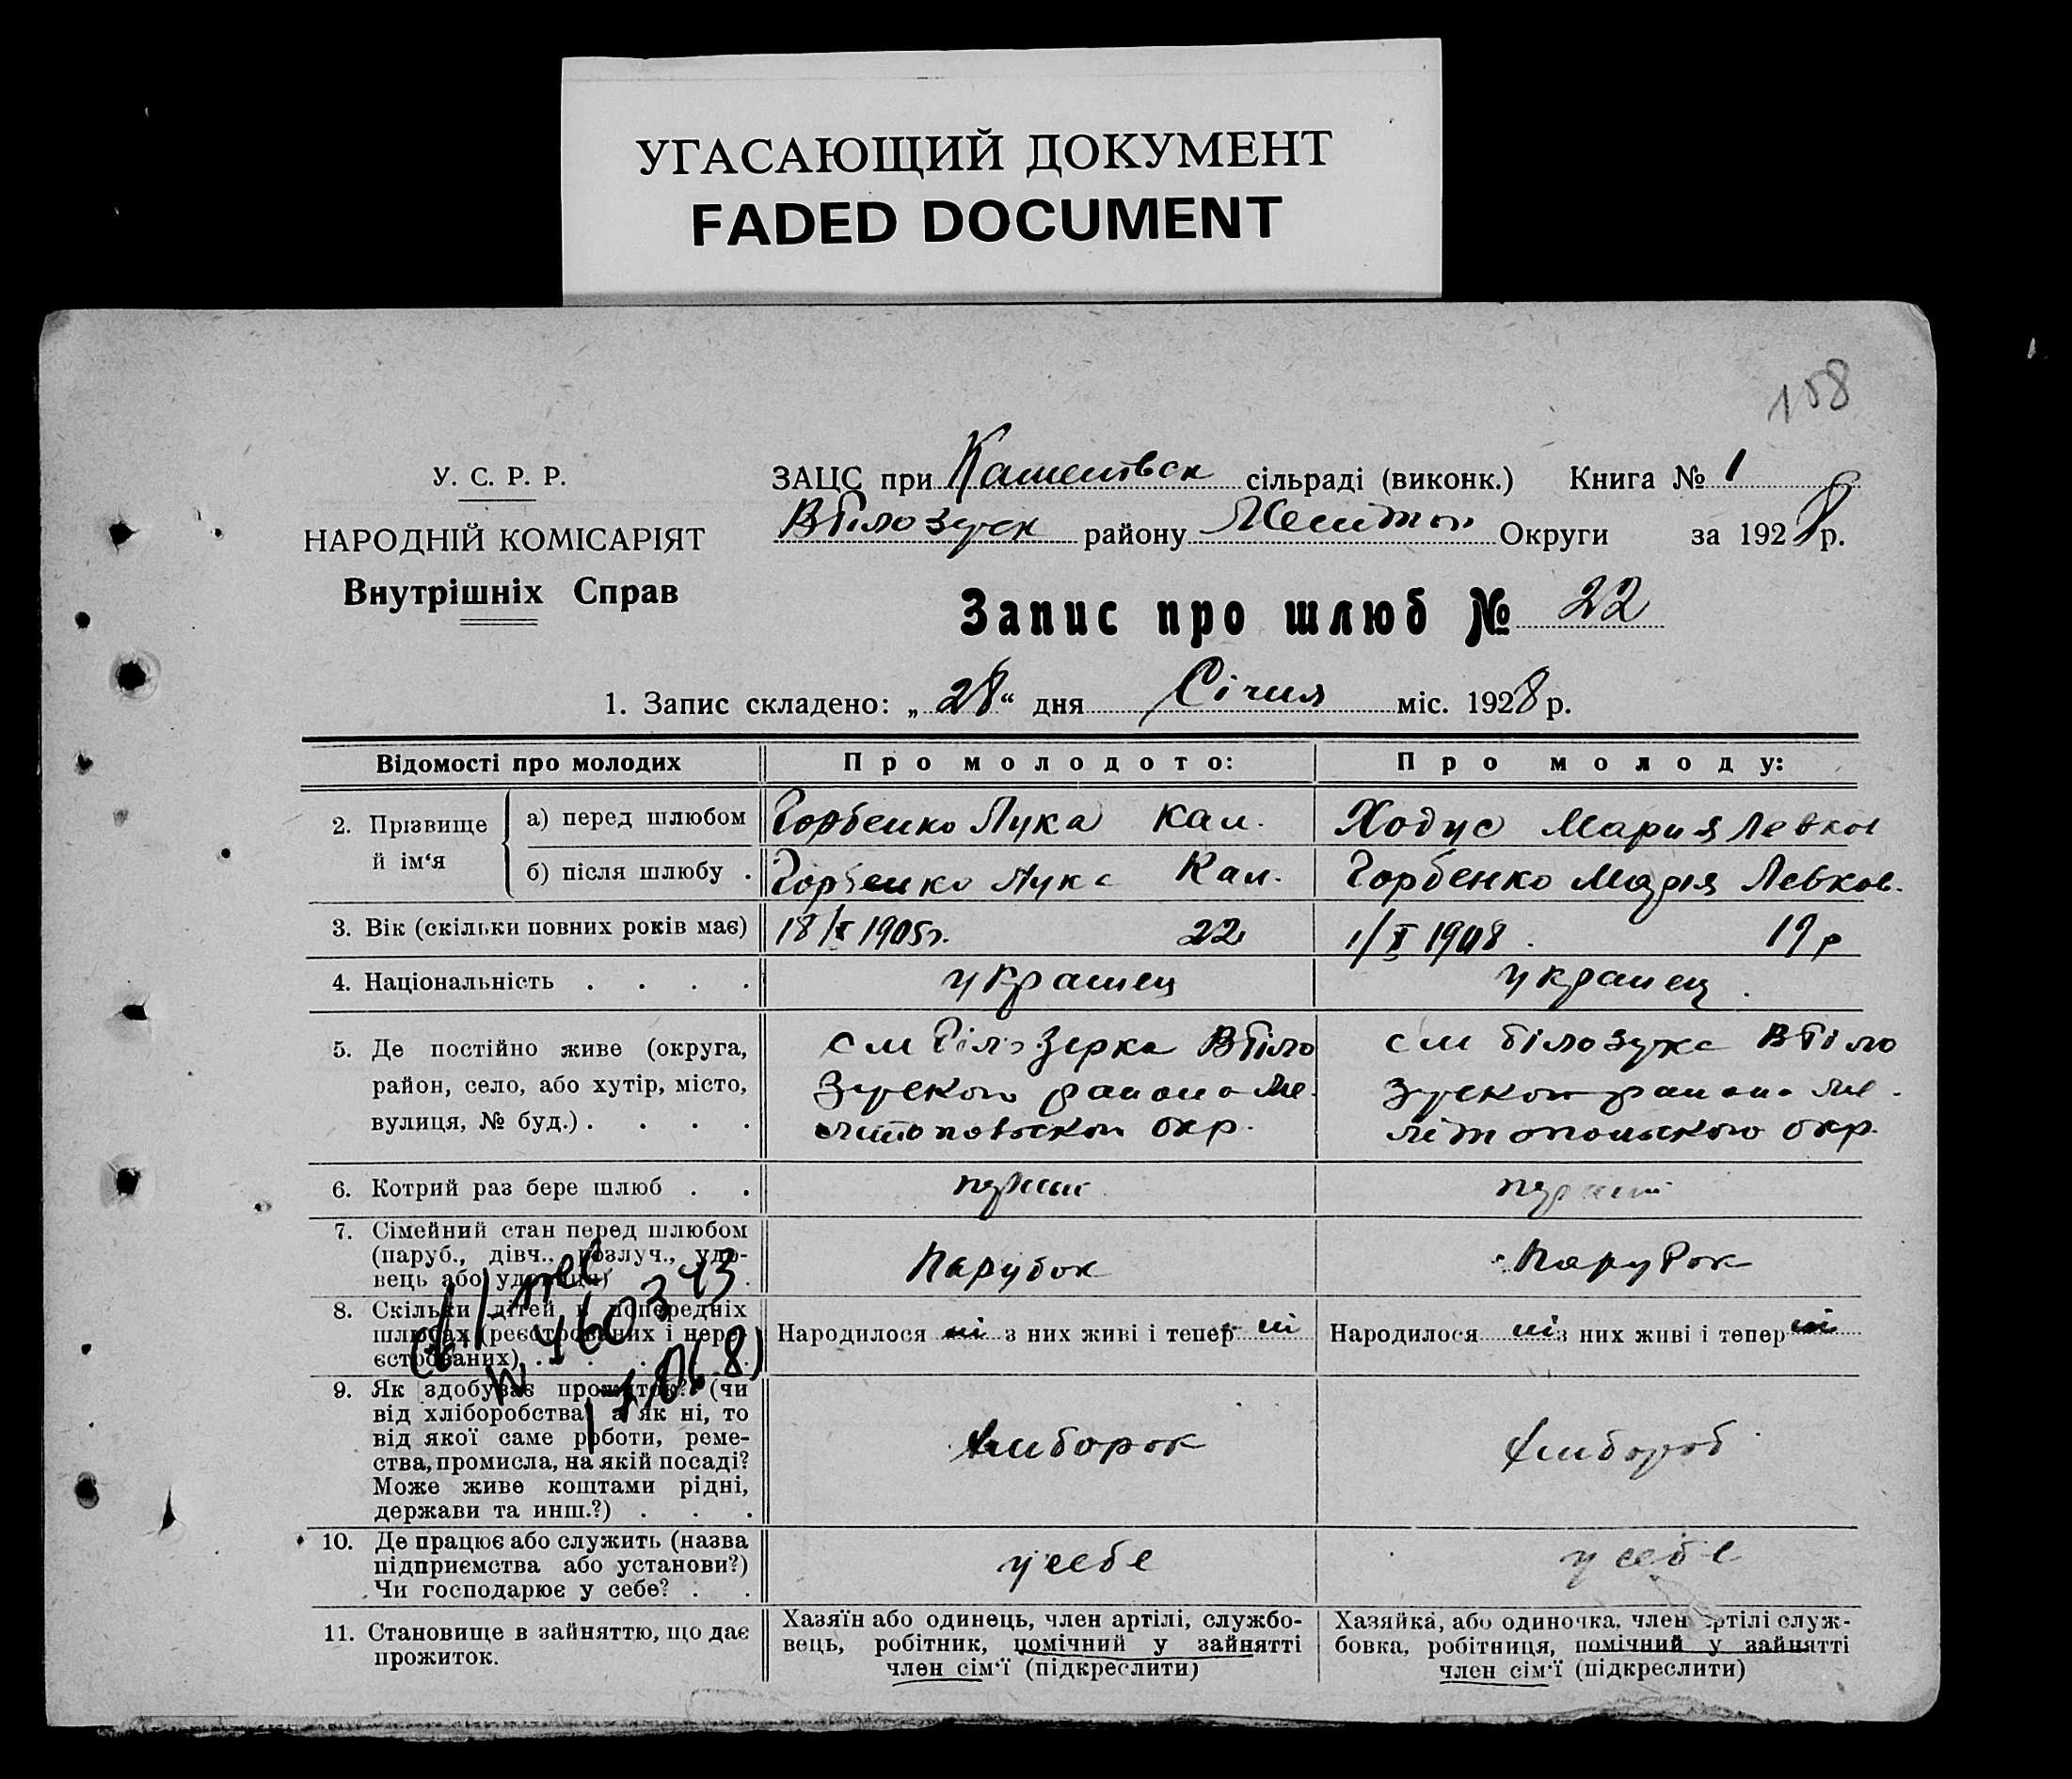 УГАСАЮЩИЙ ДОКУМЕНТ
FADED DOCUMENT
188
У. С. Р. Р.
НАРОДНІЙ КОМІСАРІЯТ
Внутрішніх Справ
ЗАЦС при сільраді (виконк.) Книга № 1
Вбілозерск району Меліт Округи за 1928 р.
Запис про шлюб № 22
1. Запис складено: „28“ дня Січня міс. 1928 р.
Відомості про молодих Про молодого: Про молоду:
2. Прізвище й ім‘я
а) перед шлюбом Горбенко Лука Кал. Ходус Мария Левков
б) після шлюбу . Горбенко Лука Кал. Горбенко Марія Левков.
3. Вік (скільки повних років має) 18/X 1905 г. 22 1/X 1908. 19 р
4. Національність . . . . украинец украинец.
5. Де постійно живе (округа,
район, село, або хутір, місто,
вулиця, № буд.) . . . .
см Білозерка Вбіло
зерского района Ме
литопольского окр.
см Білозерка Вбіло
зерского района Ме
літопольского окр.
6. Котрий раз бере шлюб . . перший перший
7. Сімейний стан перед шлюбом
(паруб., дівч., розлуч., удо-
вець або удовиця) .
Парубок Парубок
8. Скільки дітей в попередніх
шлюбах (реєстрованих і нере-
єстрованих) . . . .
Народилося ні з них живі і тепер ні Народилося ні з них живі і тепер ні
460343
9. Як здобуває прожиток? (чи
від хліборобства, а як ні, то
від якої саме роботи, реме-
ства, промисла, на якій посаді?
Може живе коштами рідні,
держави та инш.?) . . .
10. Де працює або служить (назва
підприємства або установи?)
Чи господарює у себе? . .
у себе у себе
11. Становище в зайняттю, що дає
прожиток.
Хазяїн або одинець, член артілі, службо-
вець, робітник, помічний у зайнятті
член сім‘ї (підкреслити)
Хазяйка, або одиночка, член артілі служ-
бовка, робітниця, помічний у зайнятті
член сім‘ї (підкреслити)